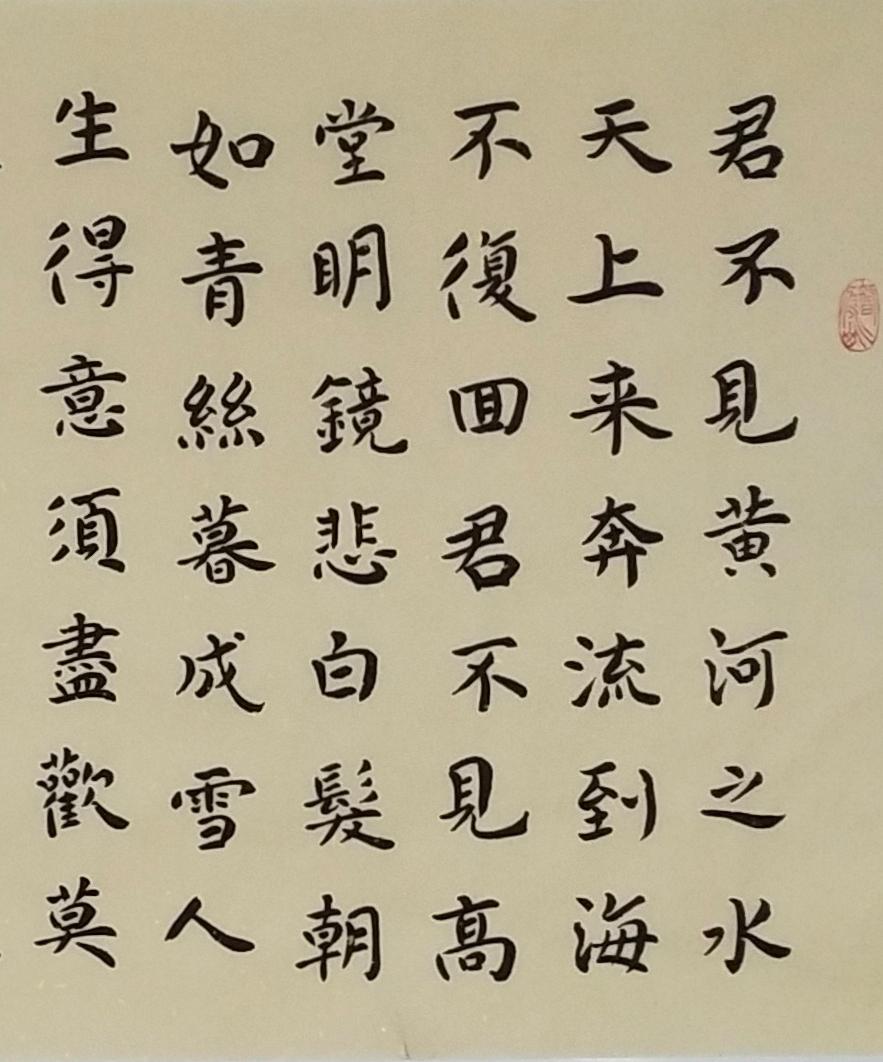 君不見黄河之水
天上来奔流到海
不復回君不見高
堂明鏡悲白髮朝
如青絲暮成雪人
生得意須盡歡莫